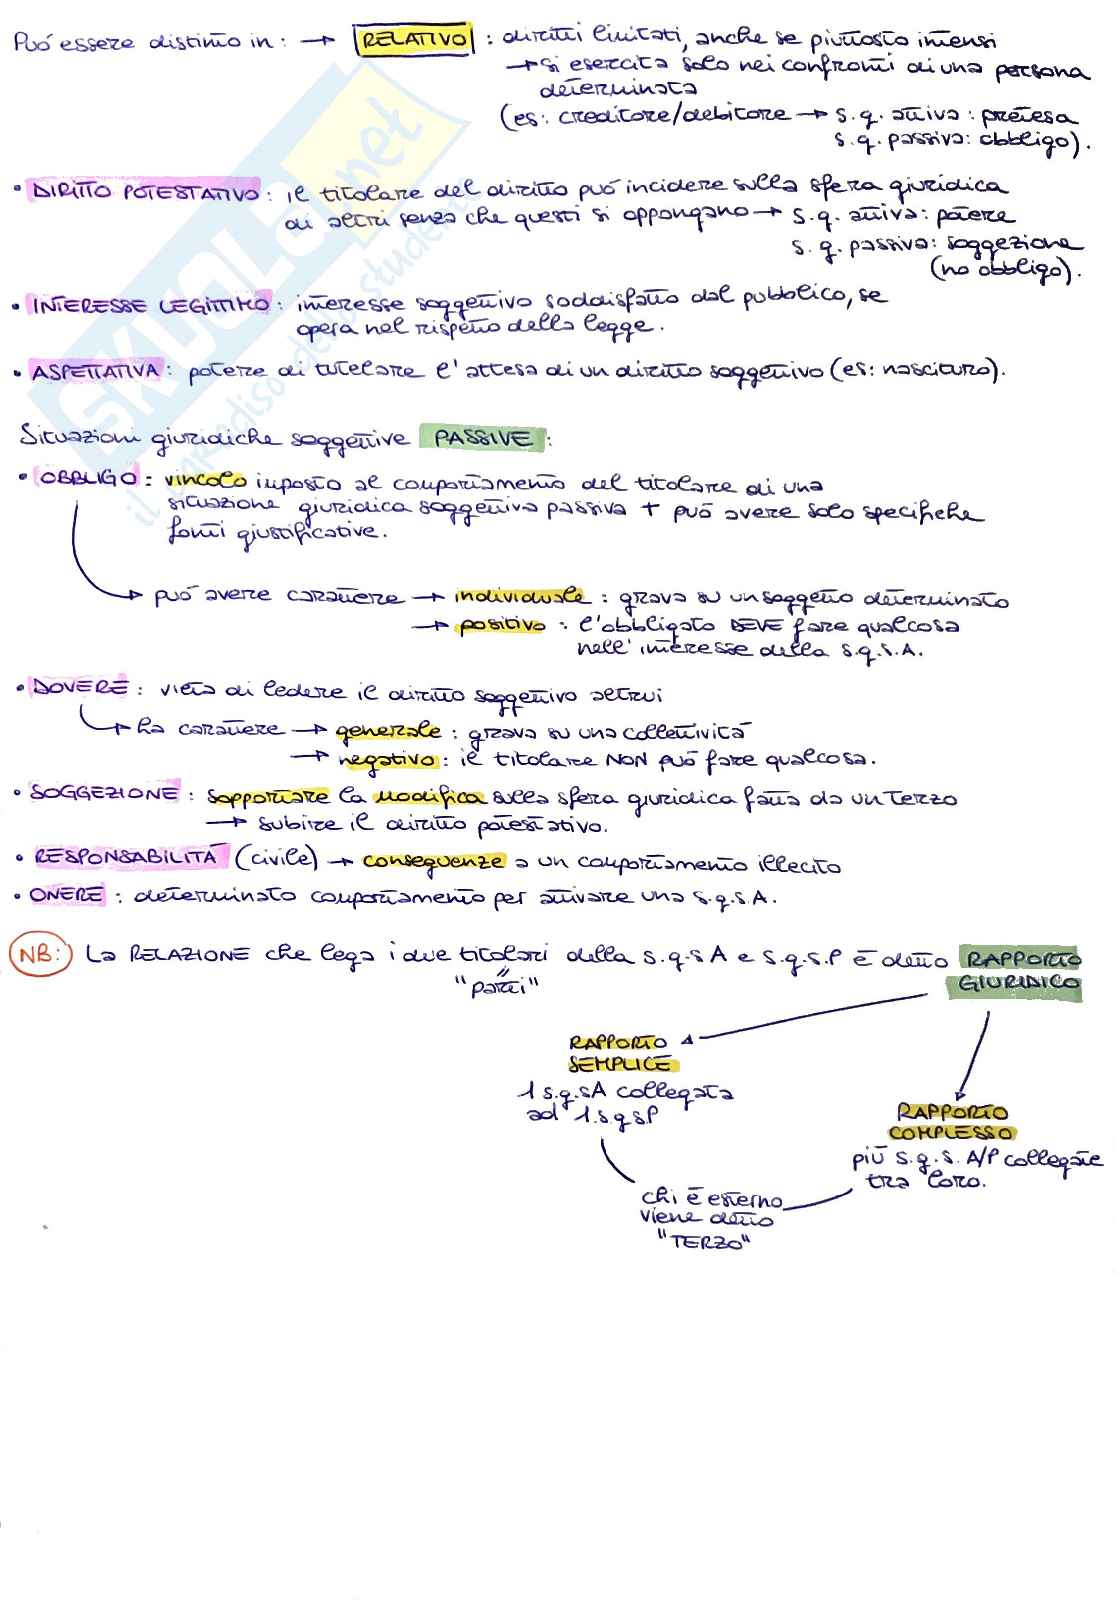 Può essere distinto in: → RELATIVO : diritti limitati, anche se piuttosto intensi
→ si esercita solo nei confronti di una persona
determinata
(es: creditore/debitore → s.g. attiva : pretesa
s.g. passiva: obbligo).
• DIRITTO POTESTATIVO : il titolare del diritto può incidere sulla sfera giuridica
di altri senza che questi si oppongano → s.g. attiva: potere
s.g. passiva: soggezione
(no obbligo).
• INTERESSE LEGITTIMO : interesse soggettivo soddisfatto dal pubblico, se
opera nel rispetto della legge.
• ASPETTATIVA : potere di tutelare l'attesa di un diritto soggettivo (es: nascituro).
Situazioni giuridiche soggettive PASSIVE :
• OBBLIGO : vincolo imposto al comportamento del titolare di una
situazione giuridica soggettiva passiva + può avere solo specifiche
fonti giustificative.
può avere carattere → individuale : grava su un soggetto determinato
→ positivo : l'obbligato DEVE fare qualcosa
nell'interesse della s.g.s.A.
• DOVERE : vieta di ledere il diritto soggettivo altrui
ha carattere → generale : grava su una collettività
→ negativo : il titolare NON può fare qualcosa.
• SOGGEZIONE : sopportare la modifica sulla sfera giuridica fatta da un terzo
→ subire il diritto potestativo.
• RESPONSABILITÀ (civile) → conseguenze a un comportamento illecito
• ONERE : determinato comportamento per attivare una s.g.s.A.
NB: La RELAZIONE che lega i due titolari della s.g.s A e s.g.s.P è detto RAPPORTO
"parti" GIURIDICO
RAPPORTO
SEMPLICE
1 s.g.sA collegata
ad 1.s.g.sP
RAPPORTO
COMPLESSO
più s.g.s. A/P collegate
tra loro.
chi è esterno
viene detto
"TERZO"
SKUOLA.net
il paradiso dello studente